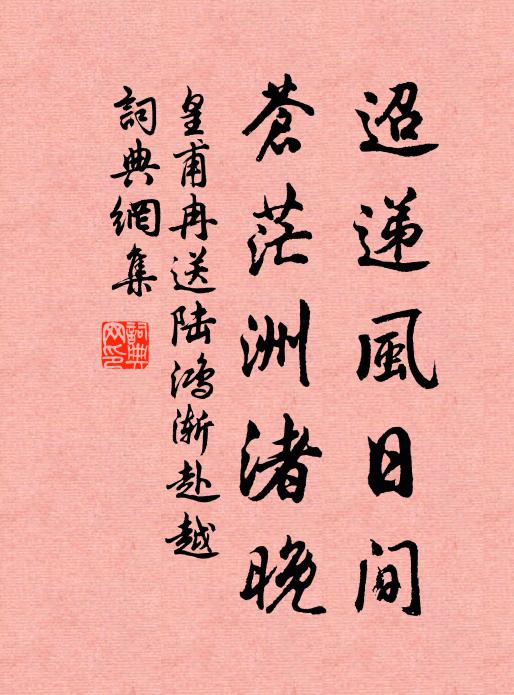 迢递風日間
蒼茫洲渚晚
皇甫冉送陆鸿渐赴越
詞典網集
詞典網印